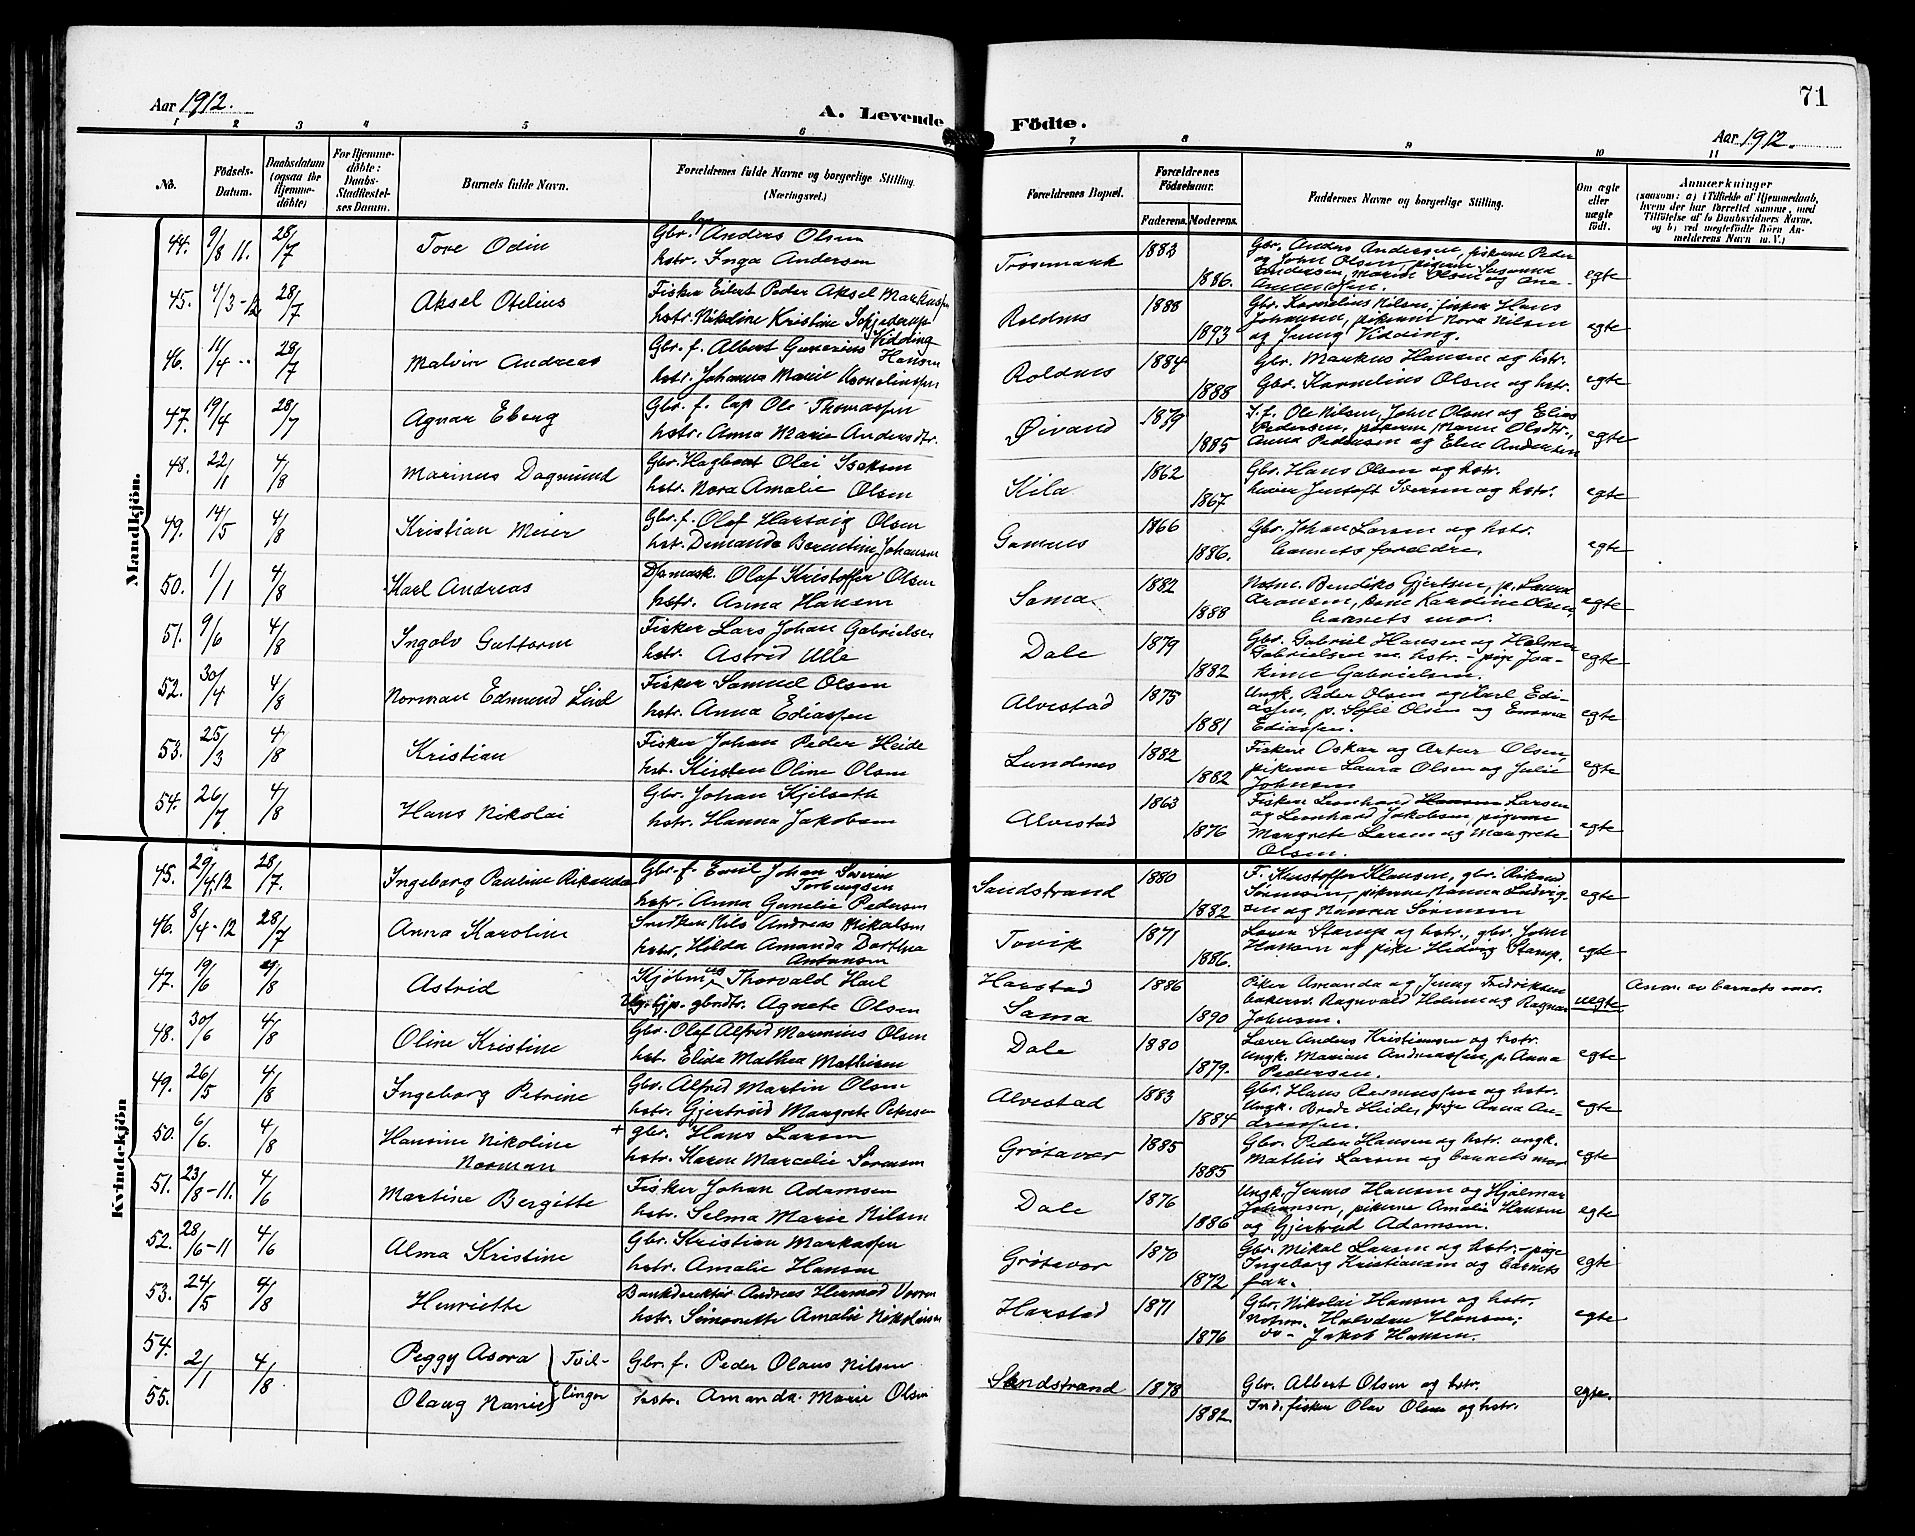 Aar 1912.
A. Levende Födte.
71
Aar 1912.
1 2 3 4 5 6 7 8 9 10 11
No.
Födsels-Datum.
Daabsdatum (ogsaa for Hjemmedöbte)
For Hjemmedöbte: Daabs-Stadfæstelses Datum.
Barnets fulde Navn.
Forældrenes fulde Navne og borgerlige Stilling. (Næringsvei.)
Forældrenes Bopæl.
Forældrenes Födselsaar.
Faderens. Moderens.
Faddernes Navne og borgerlige Stilling.
Om ægte eller uægte födt.
Anmærkninger (saasom: a) i Tilfælde af Hjemmedaab, hvem der har forrettet samme, med Tilföielse af to Daabsvidners Navne, og b) ved uægtefödte Börn Anmelderens Navn m. V.)
Mandkjön.
44. 9/8 11. 28/7 Tore Odin Gbr. Anders Olsen Trøsemark 1883 Gbr. Anders Andersen, pikerne Peder
hstr. Inga Andersen 1886. og John Olsen, egte
45. 4/3-12 28/7 Aksel Otelius Fisker Eilert Peder Aksel Markussen Roldnes 1888 Gbr. Kornelius Nilsen, fisker Hans
hstr. Nikoline Kristine Schjederup Kidding 1893 Johansen, pikerne Nora Nilsen egte
og Jenny Kidding.
46. 11/4 .. 28/7 Malvin Andreas Gbr. f. Albert Gunerius Hansen Roldnes 1884 Gbr. Markus Hansen og hstr.
hstr. Johanna Marie Kornelinssen 1888 Gbr. Kornelius Olsen og hstr. egte
47. 19/4 28/7 Agnar Eberg Gbr. f. Cap Ole Thomassen Øivand 1879 S. f. Ole Nilsen, John Olsen og Elias
hstr. Anna Marie Andersdtr. 1885 Pedersen, pikerne Maren Olsdtr., egte
Anna Pedersen og Elen Andersen
48. 22/1 4/8 Marinus Dagmund Gbr. Hagbart Olai Isaksen Kila 1862 Gbr. Hans Olsen og hstr.
hstr. Nora Amalie Olsen 1867. Jentoft Iversen og hstr. egte
49. 14/5 4/8 Kristian Meier Gbr. f. Olof Hartvig Olsen Gamnes 1866 Gbr. Johan Larsen og hstr.
hst. Demanda Berntine Johansen 1886. barnets foreldre. egte
50. 1/1 4/8 Karl Andreas Olaf Kristoffer Olsen Sama 1882 Bendiks Gjertsen, p. Laura
hstr. Anna Hansen 1888 Aronsen, Karoline Olsen, egte
barnets mor.
51. 9/6 4/8 Ingolv Guttorm Fisker Lars Johan Gabrielsen Dale 1879 Gbr. Gabriel Hansen og
hstr. Astrid Ulle 1882 Gabrielsen m. hstr. - pige Joa- egte
kime Gabrielsen.
52. 30/4 4/8 Norman Edmund Lind Fisker Samuel Olsen Alvestad 1875 Ungk. Peder Olsen og Karl Edi-
hstr. Anna Ediassen 1881 assen, p. Sofie Olsen og Emma egte
Ediassen.
53. 25/3 4/8 Kristian Fisker Johan Peder Heide Lundenes 1882 Fiskere Oskar og Artur Olsen,
hst. Kirsten Oline Olsen 1882 pikerne Laura Olsen og Julie egte
Johnsen
54. 26/7 4/8 Hans Nikolai Gbr. Johan Kjilsath Alvestad 1863 Fisker Leonhard Hansen Larsen
hstr. Hanna Jakobsen 1876 og Leonhard Jakobsen, pigerne egte
Margrete Larsen og Margrete
Olsen.
Kvindekjön
45. 29/4.12 28/7. Ingeborg Pauline Rikanda Gbr. f. Emil Johan Severin Torbergsen Sandstrand 1880 F. Kristoffer Klausen, gbr. Rikard
hstr. Anna Gunelie Pedersen 1882 Sørensen, pikerne Nanna Ludvig- egte
sen og Nanna Sørensen
46. 8/4-12 28/7 Anna Karoline Nils Andreas Nikolaisen Tovik 1871 Lærer Stamp og hstr., gbr. John
hstr. Hilda Amanda Dorthea Antonsen 1886. Hansen og pike Hedvig Stamp. egte
47. 19/6 4/8 Astrid Kjøbm. Thorvald Harl Harstad 1886 Piker Amanda og Jenny Fredriksen Anm. av barnets mor.
Ug. gp. gbrdtr. Agnete Olsen Sama 1890 bakersv. Ragnvald Holm og Ragnar uegte
Johnsen.
48. 30/6 4/8 Oline Kristine Gbr. Olaf Alfred Marenius Olsen Dale 1880 Lærer Anders Kristiansen og hstr.
hst. Elida Mathea Mathisen 1879. Ungk. Marian Andreassen, p. Anna egte
Pedersen.
49. 26/5 4/8 Ingeborg Petrine Gbr. Alfred Martin Olsen Alvestad 1883 Gbr. Hans Rasmussen og hstr.
hstr. Gjertrud Margrete Petersen 1884 Ungk. Brode Heide, pige Anna An- egte
dreassen.
50. 6/6. 4/8 Hansine Nikoline Norman + gbr. Hans Larsen Grøtavær 1885 Gbr. Peder Hansen og hstr. ungk.
hstr. Karen Marcelie Sørensen 1885 Mathis Larsen og barnets mor egte
51. 23/8-11. 4/6 Martine Bergitte Fisker Johan Adamsen Dale 1876 Ungk. Jenns Hansen og Hjalmar
hstr. Selma Marie Nilsen 1886 Johansen, pikerne Amalie Hansen egte
og Gjertrud Adamsen.
52. 28/6-11 4/6 Alma Kristine Gbr. Kristian Markussen Grøtavær 1870 Gbr. Mikal Larsen og hstr. - pige
hstr. Amalie Hansen 1872 Ingeborg Kristiansen og barnets egte
far.
53. 24/5 4/8 Henriette Bankdirektør Andreas Hermod Voren Harstad 1871 Gbr. Nikolai Hansen og hstr.
hstr. Simonette Amalie Nikolaisen 1876 Halvdan Hansen; egte
do - Jakob Hansen.
54. 2/1 4/8 Peggy Asora } Tvil- Gbr. f. Peder Olaus Nilsen Sandstrand 1878 Gbr. Albert Olsen og hstr.
55. Olaug Nanie } linger hstr. Amanda Marie Olsen 1882. Ind. fisker Olav Olsen og hstr. egte.